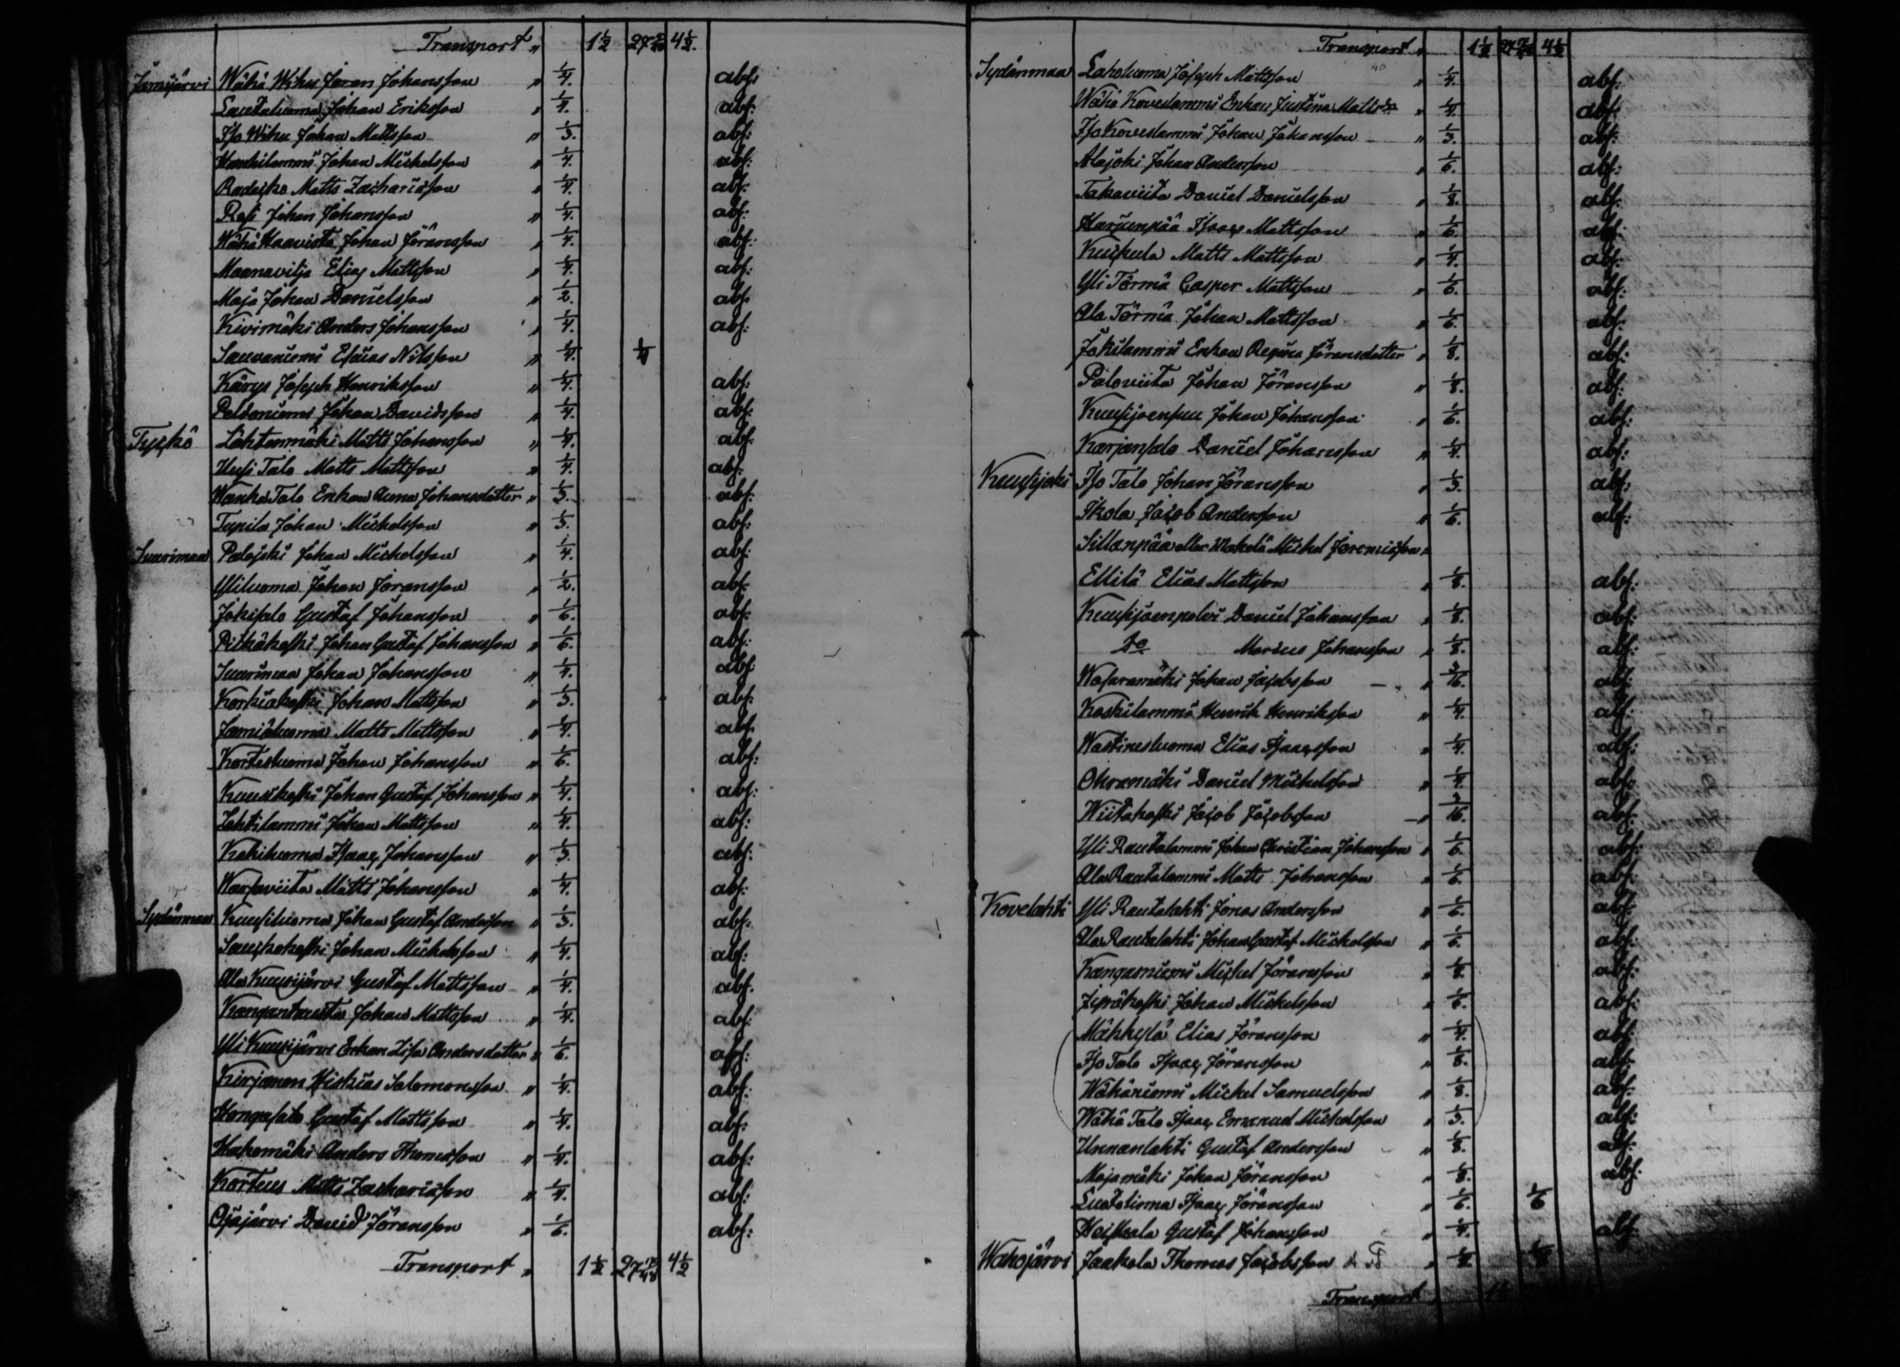 Transport " 1½ 27 4½
Jämijärvi Wähä Wihu Jöran Johansson " 1/4 abf:
Lautaluoma Johan Eriksson " 1/4 abf:
Iso Wihu Johan Mattsson " 1/3 abf:
Johan Mickelsson " 1/4 abf:
Matts Zachariasson " 1/4 abf:
Rasi Johan Johansson " 1/4 abf:
Wähä Haavisto Johan Jöransson " 1/4 abf:
Maanavilja Elias Mattsson " 1/4 abf:
Maja Johan Danielsson " 1/2 abf:
Kivimäki Anders Johansson " 1/4 abf:
Sauvaniemi Esaias Nilsson " 1/4 1/4
Kärys Joseph Henriksson " 1/4 abf:
Peldoniemi Johan Davidsson " 1/4 abf:
Tyskö Lähteenmäki Matts Johansson " 1/4 abf:
Uusi Talo Matts Mattsson " 1/4 abf:
Wanha Talo Enkan Anna Johansdotter " 1/3 abf:
Tupila Johan Mickelsson " 1/3 abf:
Suurimaa Palojoki Johan Mickelsson " 1/4 abf:
Yliluoma Johan Jöransson " 1/2 abf:
Jokisalo Gustaf Johansson " 1/6 abf:
Pitkäkoski Johan Gustaf Johansson " 1/6 abf:
Suurimaa Johan Johansson " 1/4 abf:
Korkiakoski Johan Mattsson " 1/3 abf:
Jamiluoma Matts Mattsson " 1/4 abf:
Kortesluoma Johan Johansson " 1/6 abf:
Kuusikoski Johan Gustaf Johansson " 1/4 abf:
Lahtilammi Johan Mattsson " 1/4 abf:
Kohiluoma Isaac Johansson " 1/3 abf:
Matts Johansson " 1/4 abf:
Sydänmaa Kuusiluoma Johan Gustaf Andersson " 1/3 abf:
Johan Mickelsson " 1/4 abf:
Ala Kuusijärvi Gustaf Mattsson " 1/4 abf:
Kangantausta Johan Mattsson " 1/4 abf:
Yli Kuusijärvi Enkan Lisa Andersdotter " 1/6 abf:
Kirjanen Hiskias Salomonsson " 1/4 abf:
Hongasalo Gustaf Mattsson " 1/4 abf:
Hakomäki Anders Thomasson " 1/4 abf:
Körtus Matts Zachariasson " 1/4 abf:
Ojajärvi David Jöransson " 1/6 abf:
Transport " 1½ 27 4½
Transport " 1½ 4½
Sydänmaa Laholuoma Joseph Mattsson " 1/4 abf:
Wähä Koveslammi Enkan Justina Mattsdr " 1/4 abf:
Iso Koveslammi Johan Johansson " 1/3 abf:
Alajoki Johan Andersson " 1/6 abf:
Takaviita Daniel Danielsson " 1/8 abf:
Harjunpää Isaac Mattsson " 1/6 abf:
Kuuskula Matts Mattsson " 1/4 abf:
Yli Törmä Casper Mattsson " 1/6 abf:
Ala Törmä Johan Mattsson " 1/6 abf:
Jokilammi Enkan Regina Jöransdotter " 1/8 abf:
Paloviita Johan Jöransson " 1/8 abf:
Kuusijoensuu Johan Johansson " 1/6 abf:
Karjansalo Daniel Johansson " 1/4 abf:
Kuusijoki Iso Talo Johan Jöransson " 1/3 abf:
Ikola Jacob Andersson " 1/6 abf:
Sillanpää eller Mäkelä Mickel Jeremiasson "
Ellilä Elias Mattsson " 1/8 abf:
Kuusijoenpelvi Daniel Johansson " 1/8 abf:
Do Marcus Johansson " 1/8 abf:
Wasaramäki Johan Jacobsson " 3/16 abf:
Koskilammi Henrik Henriksson " 1/4 abf:
Wastinesluoma Elias Isaacsson " 1/4 abf:
Ohramäki Daniel Mickelsson " 1/4 abf:
Wiitakoski Jacob Jacobsson " 3/16 abf:
Yli Rautalammi Johan Christian Johansson " 1/6 abf:
Ala Rautalammi Matts Johansson " 1/6 abf:
Kovelahti Yli Rautalahti Jonas Andersson " 1/6 abf:
Ala Rautalahti Johan Gustaf Mickelsson " 1/6 abf:
Kangasniemi Mickel Jöransson " 1/8 abf:
Johan Mickelsson " 1/6 abf:
Mähkylä Elias Jöransson " 1/4 abf:
Iso Talo Isaac Jöransson " 1/8 abf:
Wähäniemi Mickel Samuelsson " 1/8 abf:
Wähä Talo Isaac Emanuel Mickelsson " 1/3 abf:
Unnanlahti Gustaf Andersson " 1/8 abf:
Majamäki Johan Jöransson " 1/8 abf:
Isaac Jöransson " 1/6 1/6
Heiskala Gustaf Johansson " 1/4 abf:
Wahojärvi Jaakola Thomas Jacobsson
Transport